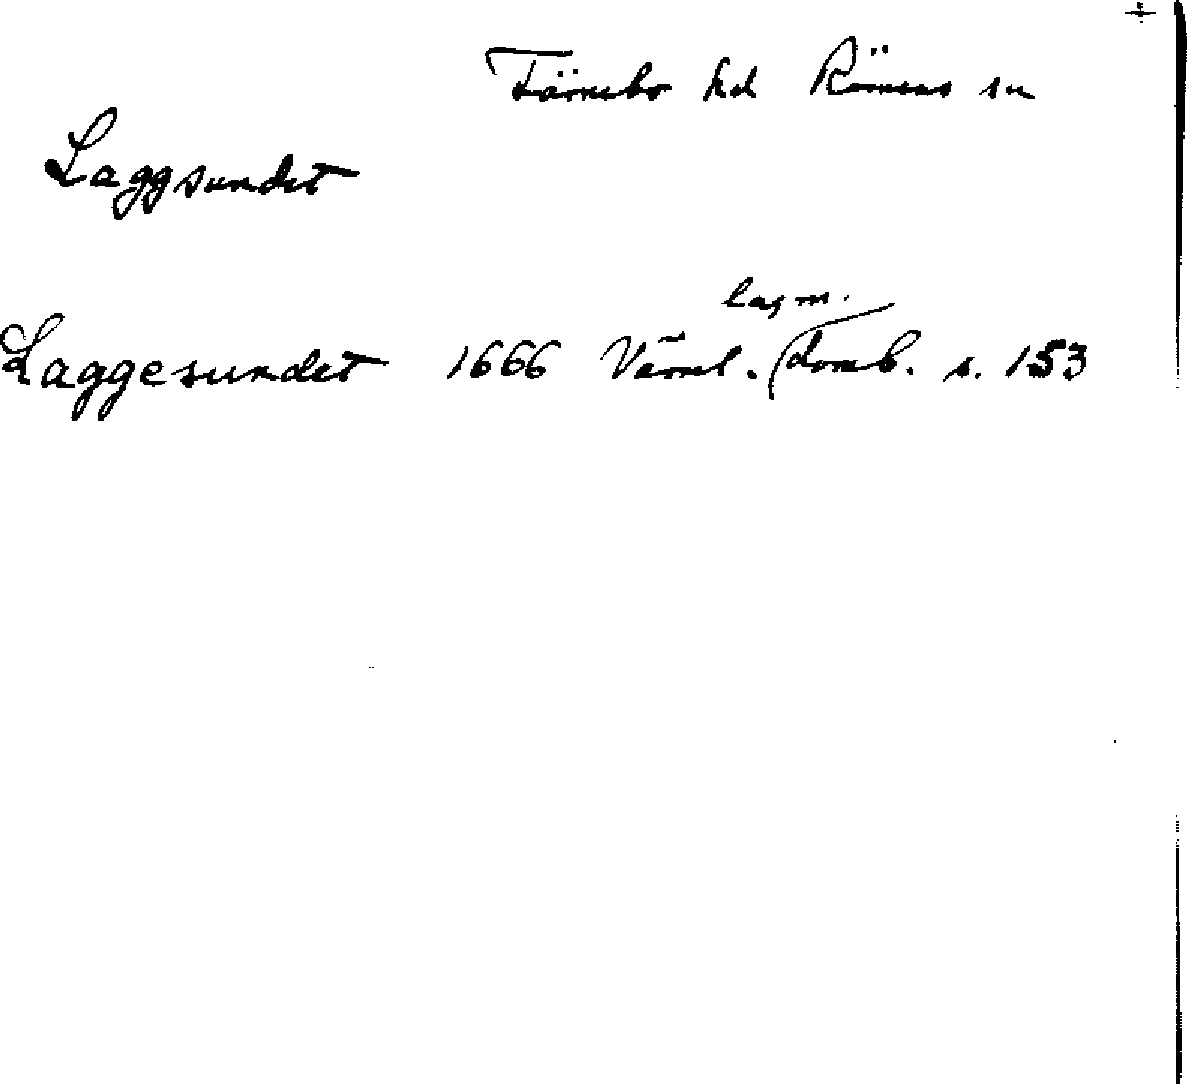 Färnebo hd Rämens sn
Laggsundet
lagm.
Laggesundet 1666 Värml. domb. s. 153